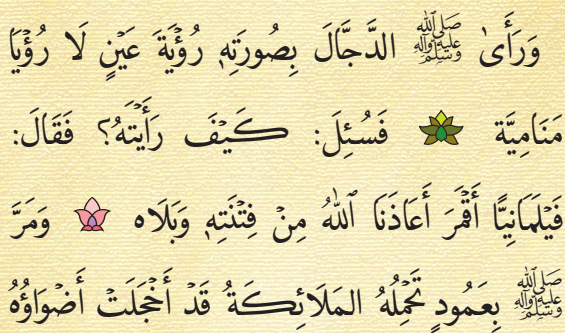 وَرَأَىٰ ﷺ الدَّجَّالَ بِصُورَتِهِ رُؤْيَةَ عَيْنٍ لَا رُؤْيَا
مَنَامِيَّة فَسُئِلَ: كَيْفَ رَأَيْتَهُ؟ فَقَالَ:
فَيْلَمَانِيًّا أَقْمَرَ أَعَاذَنَا ٱللهُ مِنْ فِتْنَتِهِ وَبَلَاه وَمَرَّ
ﷺ بِعَمُودٍ تَحْمِلُهُ المَلَائِكَةُ قَدْ أَخْجَلَتْ أَضْوَاؤُهُ